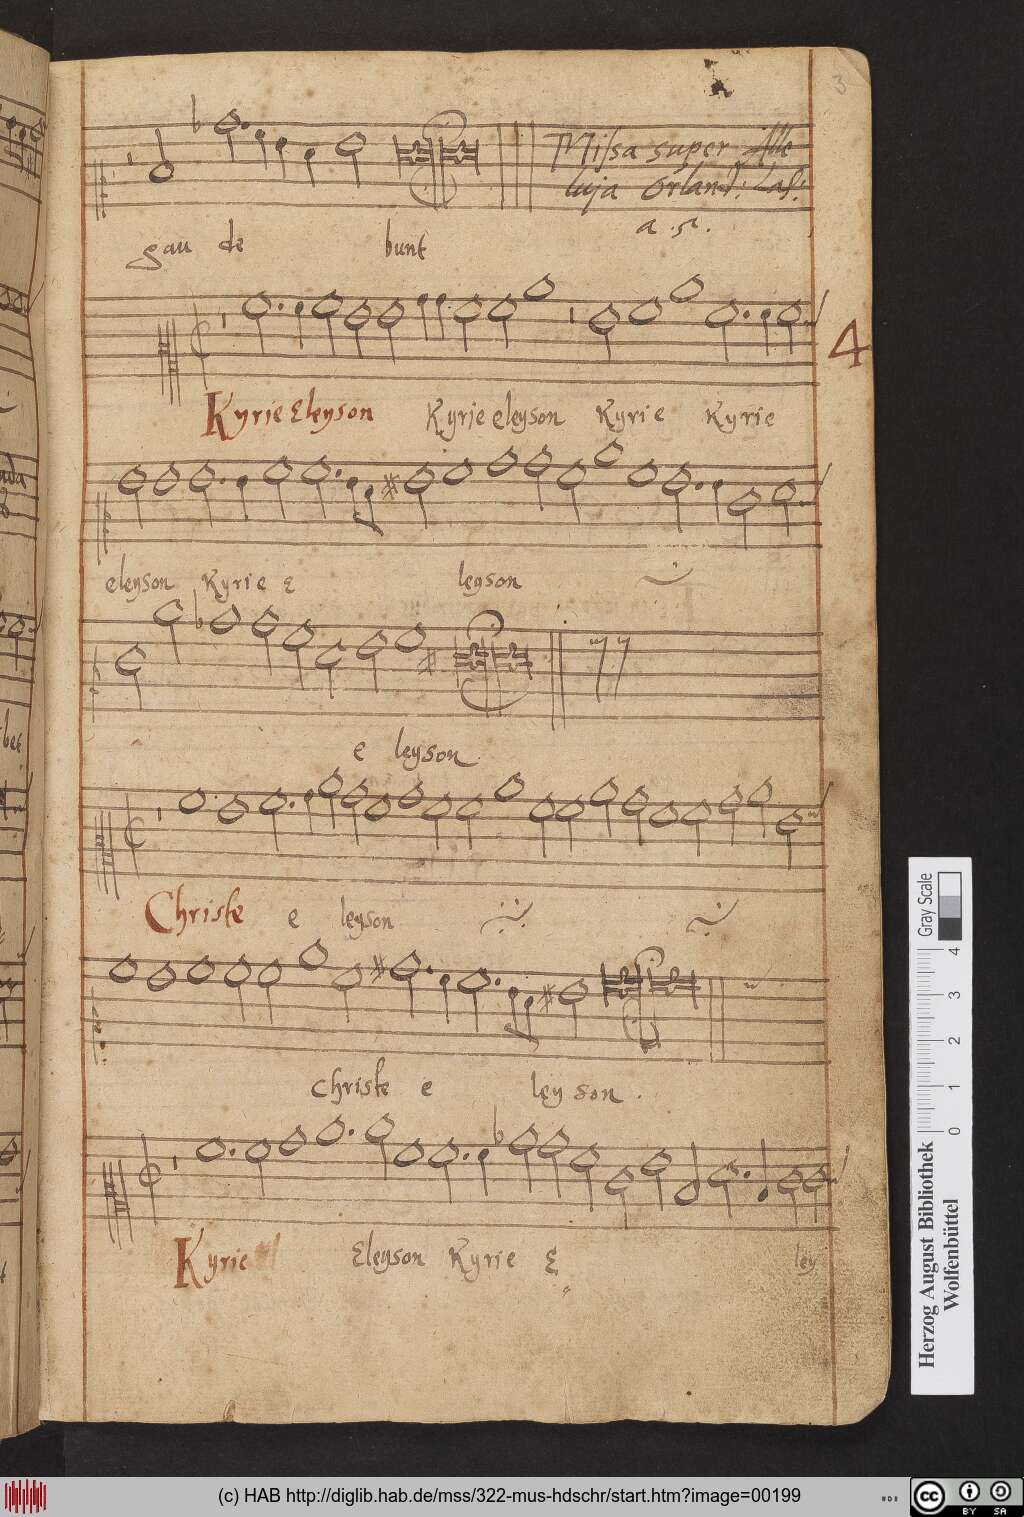 3
Missa super Alle
luja Orland: Las:
a .5.
gau de bunt
4
Kyrie Eleyson Kyrie eleyson Kyrie Kyrie
eleyson Kyrie e leyson
e leyson
Christe e leyson
Christe e ley son .
Kyrie Eleyson Kyrie E ley
Gray Scale
0 1 2 3 4
Herzog August Bibliothek
Wolfenbüttel
(c) HAB http://diglib.hab.de/mss/322-mus-hdschr/start.htm?image=00199
cc BY SA